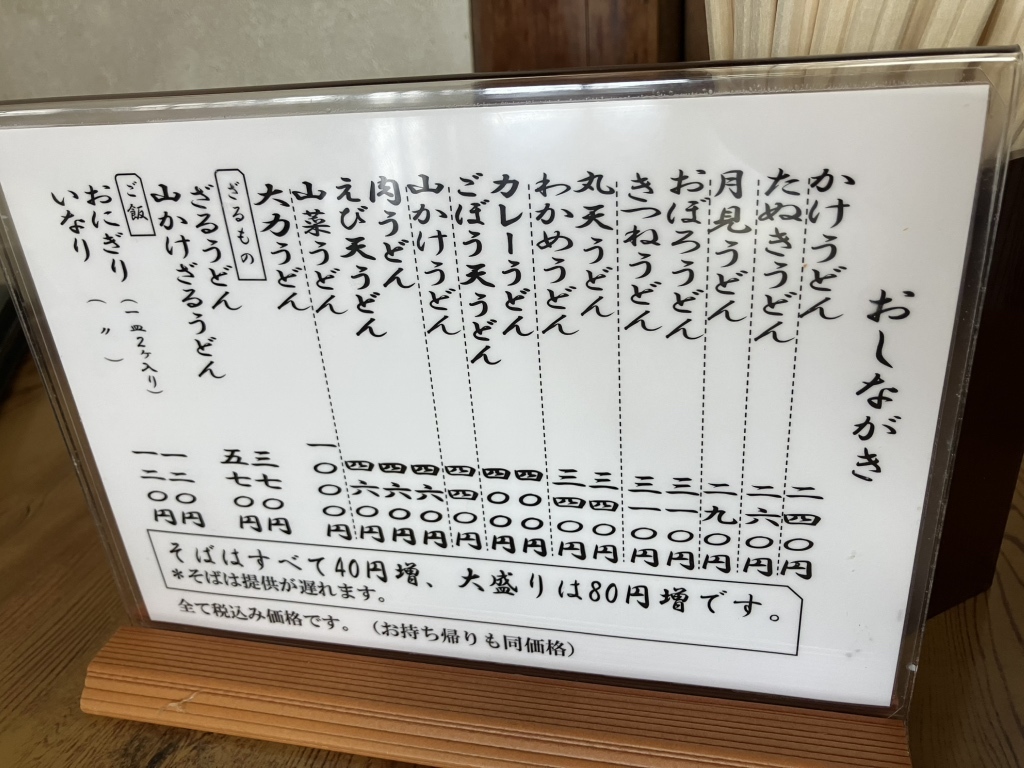 おしながき
かけうどん 二四〇円
たぬきうどん 二六〇円
月見うどん 二九〇円
おぼろうどん 三一〇円
きつねうどん 三一〇円
丸天うどん 三四〇円
わかめうどん 三四〇円
カレーうどん 四〇〇円
ごぼう天うどん 四〇〇円
山かけうどん 四四〇円
肉うどん 四六〇円
えび天うどん 四六〇円
山菜うどん 四六〇円
大力うどん 一〇〇〇円
ざるもの
ざるうどん 三七〇円
山かけざるうどん 五七〇円
ご飯
おにぎり（一皿2ヶ入り） 一二〇円
いなり（〃） 一二〇円
そばはすべて40円増、大盛りは80円増です。
*そばは提供が遅れます。
全て税込み価格です。（お持ち帰りも同価格）